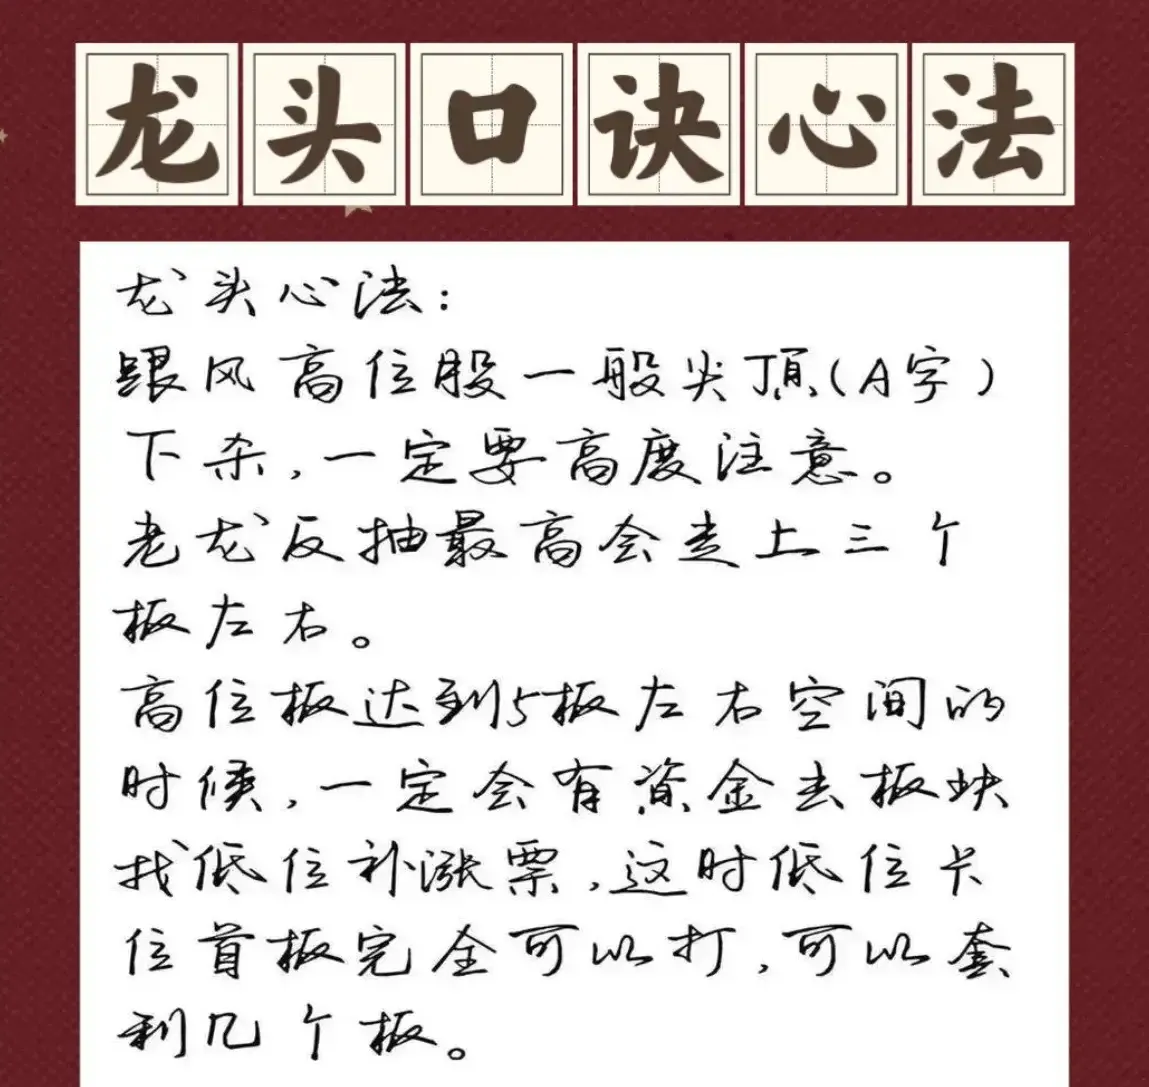 龙头口诀心法
龙头心法：
跟风高位股一般尖頂（A字）
下杀，一定要高度注意。
老龙反抽最高会走上三个
板左右。
高位板达到5板左右空间的
时候，一定会有资金去板块
找低位补涨票，这时低位卡
位首板完全可以打，可以套
利几个板。